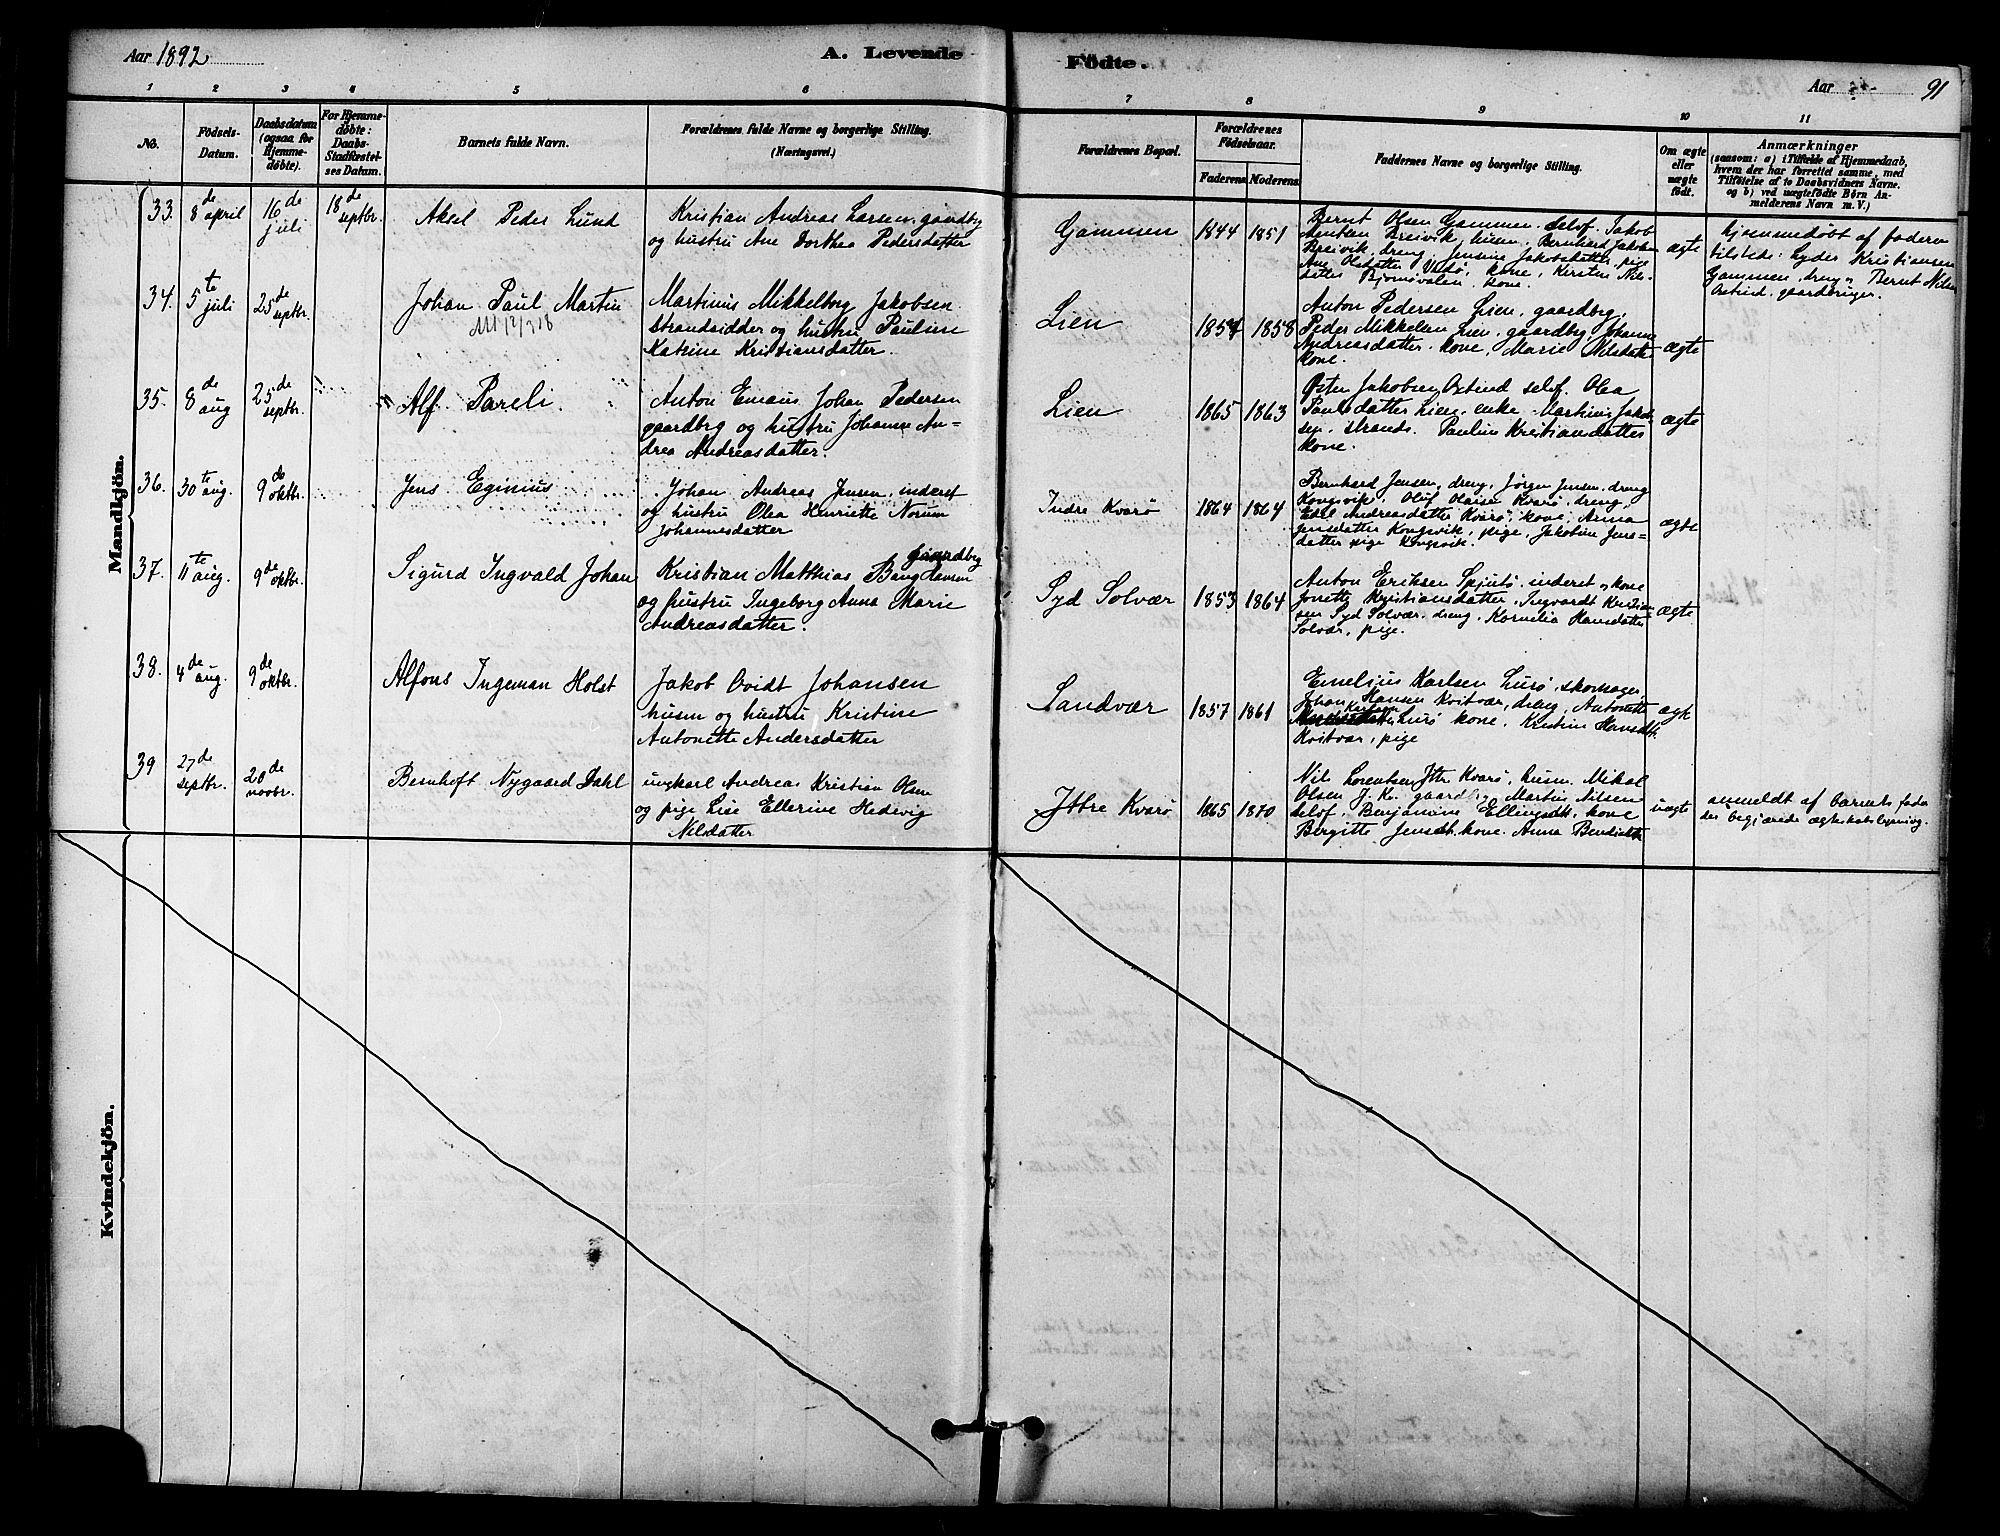 Aar 1892
A. Levende
Födte.
Aar
91
1
2
3
4
5
6
7
8
9
10
11
No.
Födsels-
Datum.
Daabsdatum
(ogsaa for
Hjemme-
döbte).
For Hjemme-
döbte:
Daabs-
Stadfæstel-
ses Datum.
Barnets fulde Navn.
Forældrenes fulde Navne og borgerlige Stilling.
(Næringsvei.)
Forældrenes Bopæl.
Forældrenes
Födselsaar.
Faderens
Moderens.
Faddernes Navne og borgerlige Stilling.
Om ægte
eller
uægte
födt.
Anmærkninger
(saasom: a) i Tilfælde af Hjemmedaab,
hvem der har forrettet samme, med
Tilföielse af to Daabsvidners Navne.
og b) ved uægtefödte Börn An-
melderens Navn m. V.)
Mandkjön.
33.
8de april
16de juli
18de septbr.
Aksel Peder Lund
Kristian Andreas Larsen, gaardbrg
og hustru Ane Dorthea Pedersdatter
Gammen
1844
1851
Bernt Olsen Gammen, selof. Jakob
Breivik, husm. Bernhard Jakobs
Breivik, dreng, Jensine Jakobsdatter, pige
Ane Olsdatter, kone, Kirsten Nils-
datter kone.
ægte
hjemmedøbt af faderen
tilstede: Peder Kristiansen
Gammen, dreng, Bernt Nilsen
gaardbruger.
34.
5te juli
25de septbr.
Johan Paul Martin
Martinus Mikkelborg Jakobsen
Strandsidder og hustru Pauline
Katrine Kristiansdatter.
Lien
1857
1858
Anton Pedersen Lien, gaardbrg,
Peder Mikkelsen Lien, gaardbrg, Johanne
Andreasdatter, kone, Marie Nilsdatt.
kone.
ægte
35.
8de aug
25de septbr.
Alf Pareli.
Anton Emaus Johan Pedersen
gaardbrg og hustru Johanne An=
drea Andreasdatter.
Lien
1865
1863
Peter Jakobsen selof. Olea
Paulsdatter Lien, enke. Martinus Jakob
sen. strands. Pauline Kristiansdatter
kone.
ægte
36.
30te aug.
9de oktbr.
Jens Eginius
Johan Andreas Jensen, inderst
og hustru Olea Henriette Norum
Johannesdatter
Indre Kvarø
1864
1864
Bernhard Jensen, dreng, Jørgen Jensen, dreng
Kongsvik. Oluf Olaisen Kvarø, dreng
Andreasdatter Kvarø, kone, Anna
Jensdatter Kongsvik, pige, Jakobine Jens-
datter pige Kongsvik.
ægte
37.
11te aug.
9de oktbr.
Sigurd Ingvald Johan
Kristian Matthias Bang Hansen gaardbrg
og hustru Ingeborg Anna Marie
Andreasdatter.
Syd Solvær
1853
1864
Anton Eriksen Spjutø, inderst og kone
Jonette Kristiansdatter. Ingvardt Kristian
sen Syd Solvær. dreng. Kornelia Hansdatter
Solvær, pige.
ægte
38.
4de aug.
9de oktbr.
Alfons Ingeman Holst
Jakob Ovidt Johansen
husm og hustru Kristine
Antonette Andersdatter
Sandvær
1857
1861
Emelius Karlsen Lurø, skomager,
Johan Hansen Kvitvær, dreng, Antonette
Lurø kone. Kristine Hansdtt.
Kvitvær, pige
ægte
39
27de septbr.
20de novbr.
Bernhoft Nygaard Dahl
ungkarl Andreas Kristian Olsen
og pige Lise Ellerine Hedevig
Nilsdatter
Ytre Kvarø
1865
1870
Nils Lorentsen Ytr. Kvarø, husm. Mikal
Olsen J. K. gaardbrg, Martin Nilsen
selof. Benjamine Ellingsdt, kone
Birgitte Jensdt. kone. Anna Bendikts
uægte
anmeldt af barnets fader
der begjærede ægteskabslysning.
Kvindekjön.